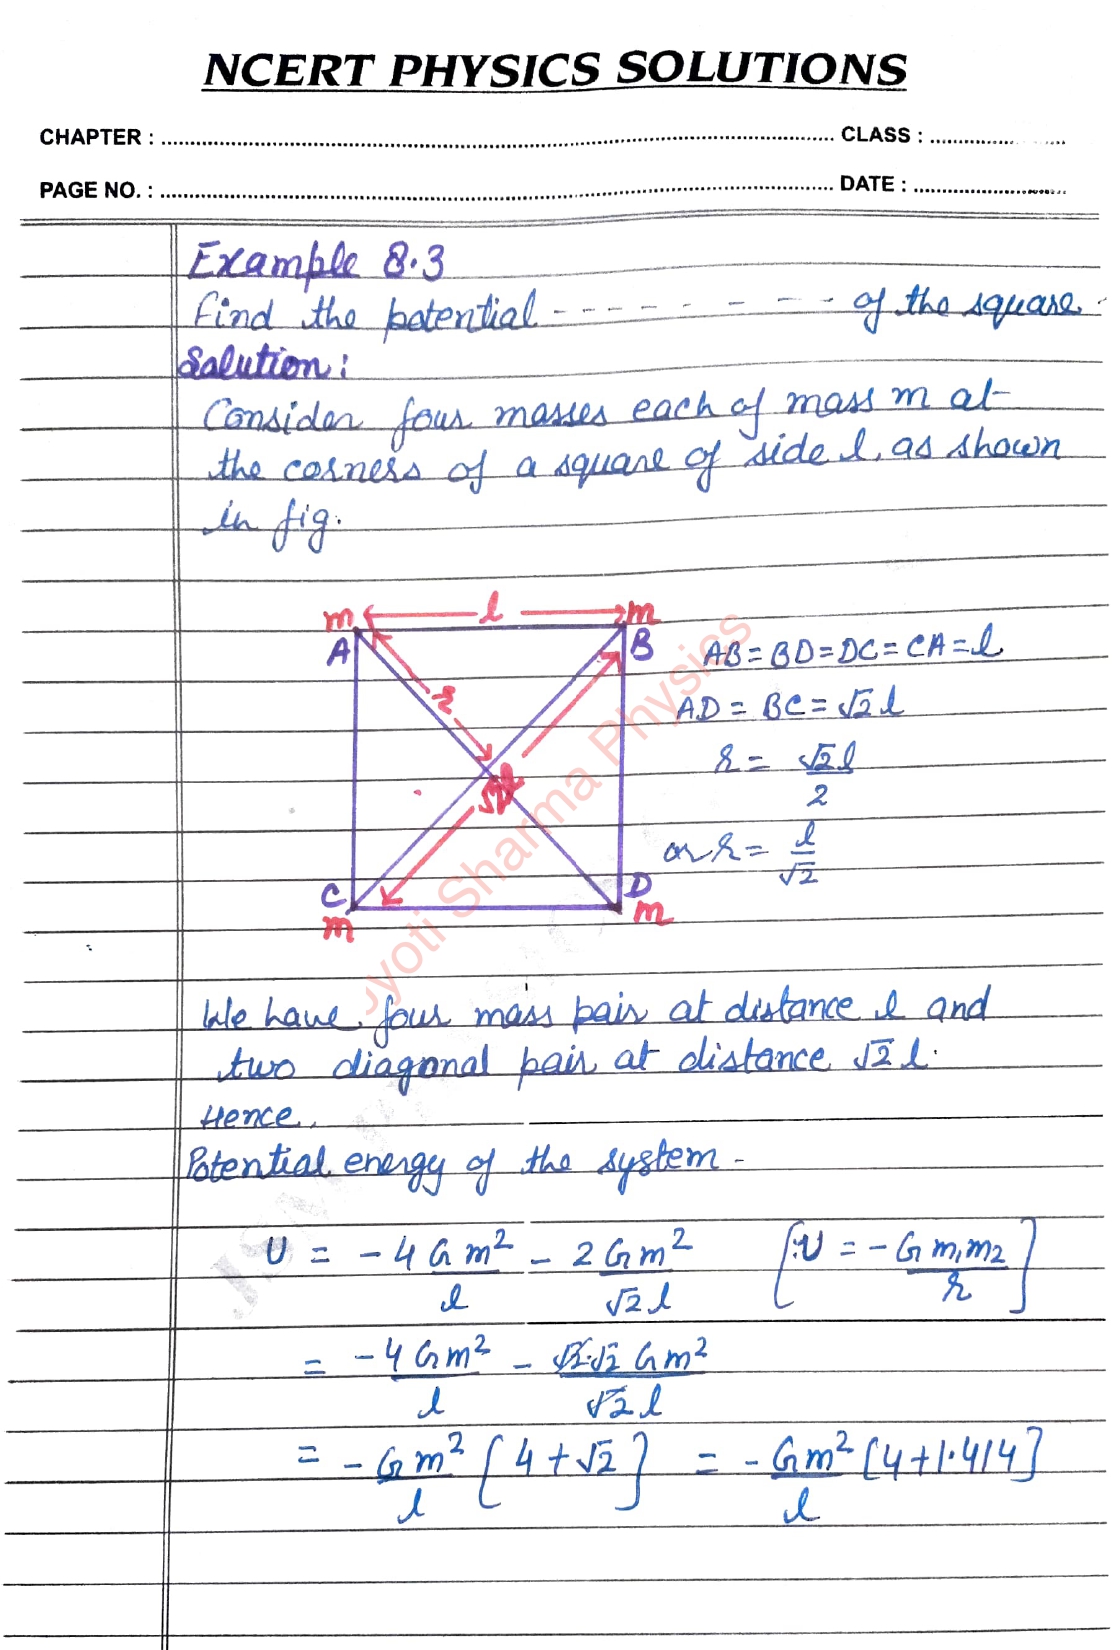 NCERT PHYSICS SOLUTIONS
CHAPTER : ........ CLASS : ........
PAGE NO. : ........ DATE : ........
Example 8.3
Find the potential - - - - - - - - of the square.
Solution:
Consider four masses each of mass m at
the corners of a square of side l, as shown
in fig.
m l m
A B
r
√2l
C D
m m
AB = BD = DC = CA = l
AD = BC = √2 l
r = √2l/2
or r = l/√2
Jyoti Sharma Physics
We have, four mass pair at distance l and
two diagonal pair at distance √2 l.
Hence,
Potential energy of the system -
U = -4 G m²/l - 2 G m²/√2 l [∵ U = - G m₁m₂/r]
= -4 G m²/l - √2·√2 G m²/√2 l
= - G m²/l [4 + √2] = - G m²/l [4 + 1.414]